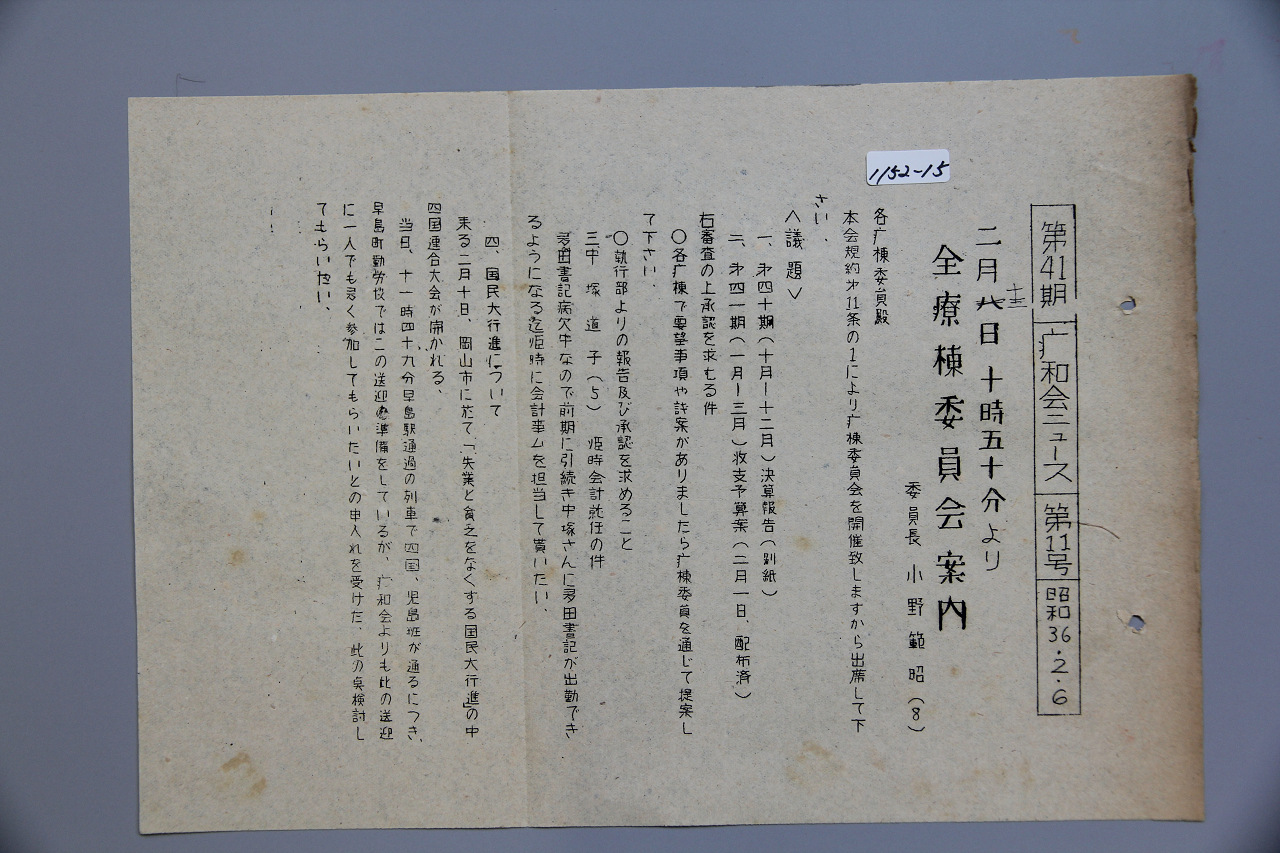 1152-15
第41期 疒和会ニュース 第11号 昭和36.2.6
二月八日十時五十分より
十三
全療棟委員会案内
委員長 小野範昭(8)
各疒棟委員殿
本会規約才11条の1により疒棟委員会を開催致しますから出席して下
さい、
<議題>
一、才四十期(十月ー十二月)決算報告(別紙)
二、才四一期(一月ー三月)收支予算案(二月一日、配布済)
右審査の上承認を求むる件
〇各疒棟で要望事項や試案がありましたら疒棟委員を通じて提案し
て下さい、
〇執行部よりの報告及び承認を求めること
三中塚道子(5)臨時会計就任の件
多田書記病欠中なので前期に引続き中塚さんに多田書記が出勤でき
るようになる迄臨時に会計事ムを担当して貰いたい、
四、国民大行進について
来る二月十日、岡山市に於て「失業と貧乏をなくする国民大行進」の中
四国連合大会が開かれる、
当日、十一時四十九分早島駅通過の列車で四国、児島班が通るにつき、
早島町勤労協ではこの送迎の準備をしているが、疒和会よりも此の送迎
に一人でも多く参加してもらいたいとの申入れを受けた、此の点検討し
てもらいたい、